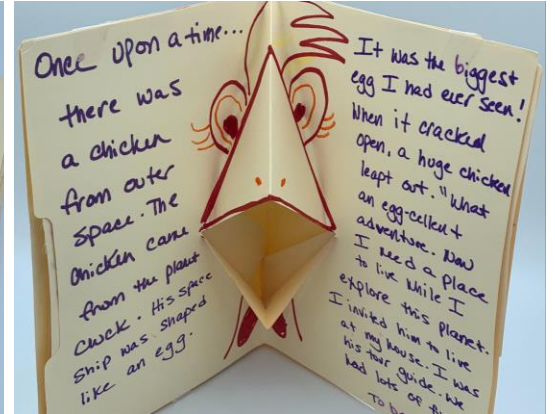 Once upon a time...
there was
a chicken
from outer
space. The
chicken came
from the planet
Cluck. His space
ship was shaped
like an egg.
It was the biggest
egg I had ever seen!
When it cracked
open, a huge chicken
leapt out. "What
an egg-cellent
adventure. Now
I need a place
to live while I
explore this planet.
I invited him to live
at my house. I was
his tour guide. We
had lots of
To